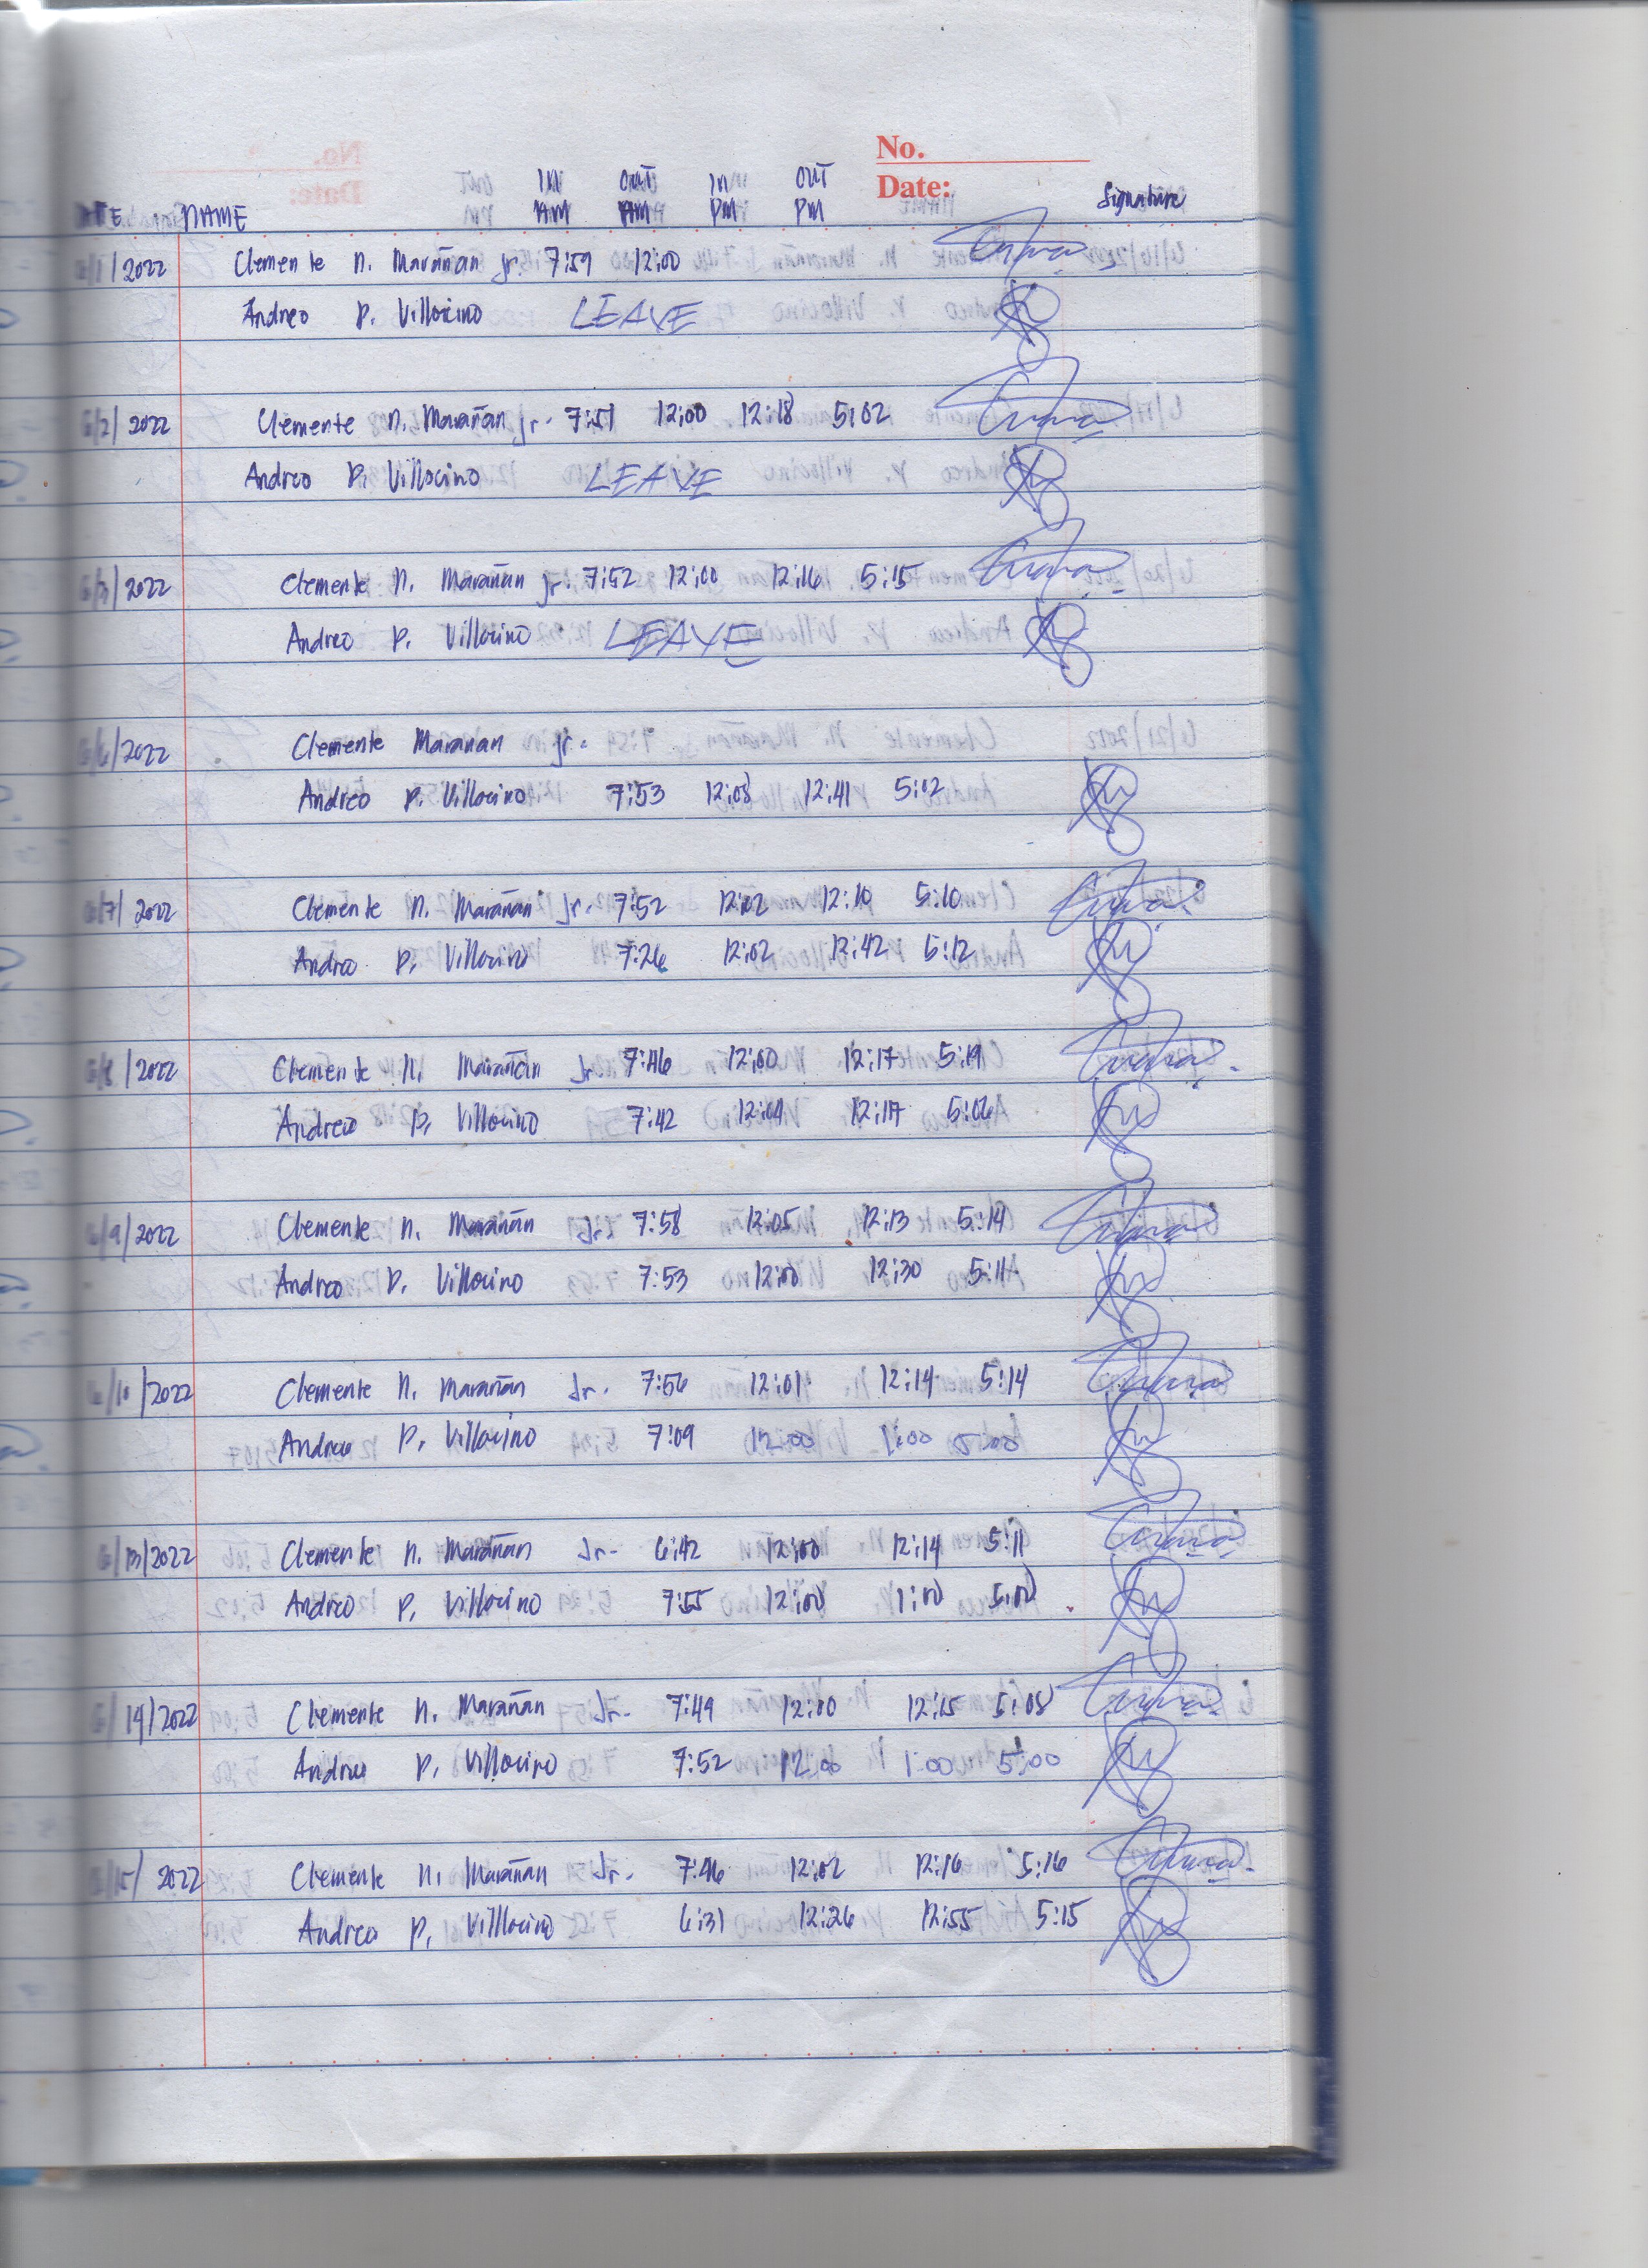 No.
Date:
IN OUT IN OUT
DATE NAME AM AM PM PM Signature
6/1/2022 Clemente N. Marañan Jr. 7:59 12:00
Andreo P. Villocino LEAVE
6/2/2022 Clemente N. Marañan Jr. 7:51 12:00 12:18 5:02
Andreo P. Villocino LEAVE
6/3/2022 Clemente N. Marañan Jr. 7:52 12:00 12:16 5:15
Andreo P. Villocino LEAVE
6/6/2022 Clemente Maranan Jr.
Andreo P. Villocino 7:53 12:08 12:41 5:02
6/7/2022 Clemente N. Marañan Jr. 7:52 12:02 12:10 5:10
Andreo P. Villocino 7:26 12:02 12:42 5:12
6/8/2022 Clemente N. Marañan Jr 7:46 12:00 12:17 5:19
Andreo P. Villocino 7:42 12:04 12:17 5:06
6/9/2022 Clemente N. Marañan Jr. 7:58 12:05 12:13 5:14
Andreo P. Villocino 7:53 12:00 12:30 5:11
6/10/2022 Clemente N. Marañan Jr. 7:56 12:01 12:14 5:14
Andreo P. Villocino 7:09 12:00 1:00 5:00
6/13/2022 Clemente N. Marañan Jr- 6:42 12:00 12:14 5:11
Andreo P. Villocino 7:55 12:00 1:00 5:00
6/14/2022 Clemente N. Marañan Jr- 7:49 12:00 12:15 5:08
Andreo P. Villocino 7:52 12:00 1:00 5:00
6/15/2022 Clemente N. Marañan Jr. 7:46 12:02 12:16 5:16
Andreo P. Villlocino 6:31 12:26 12:55 5:15